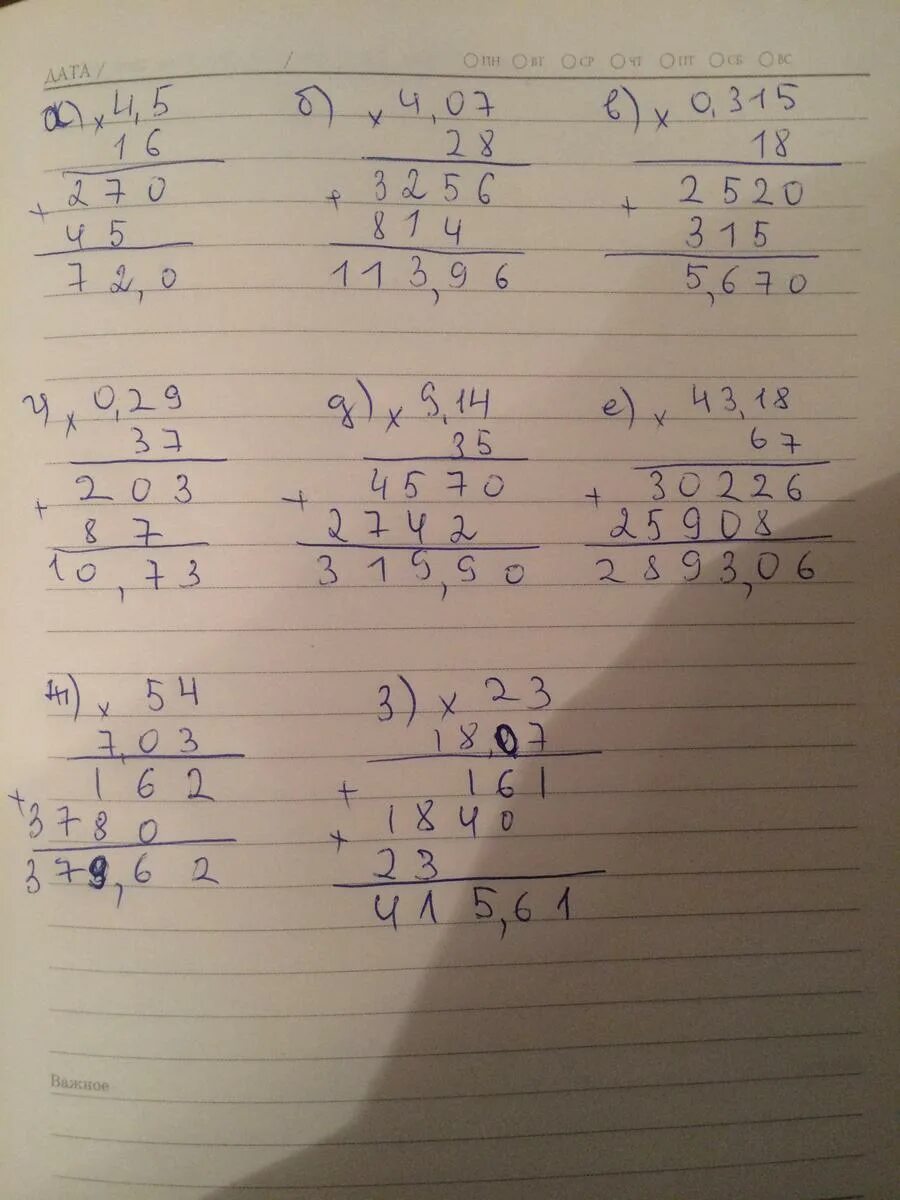 ДАТА / / ПН ВТ СР ЧТ ПТ СБ ВС
а) × 4,5
16
+ 270
45
72,0
б) × 4,07
28
+ 3256
814
113,96
в) × 0,315
18
+ 2520
315
5,670
г) × 0,29
37
+ 203
87
10,73
д) × 9,14
35
+ 4570
2742
319,90
е) × 43,18
67
+ 30226
25908
2893,06
ж) × 54
7,03
+ 162
3780
379,62
з) × 23
18,07
+ 161
+ 1840
23
415,61
Важное